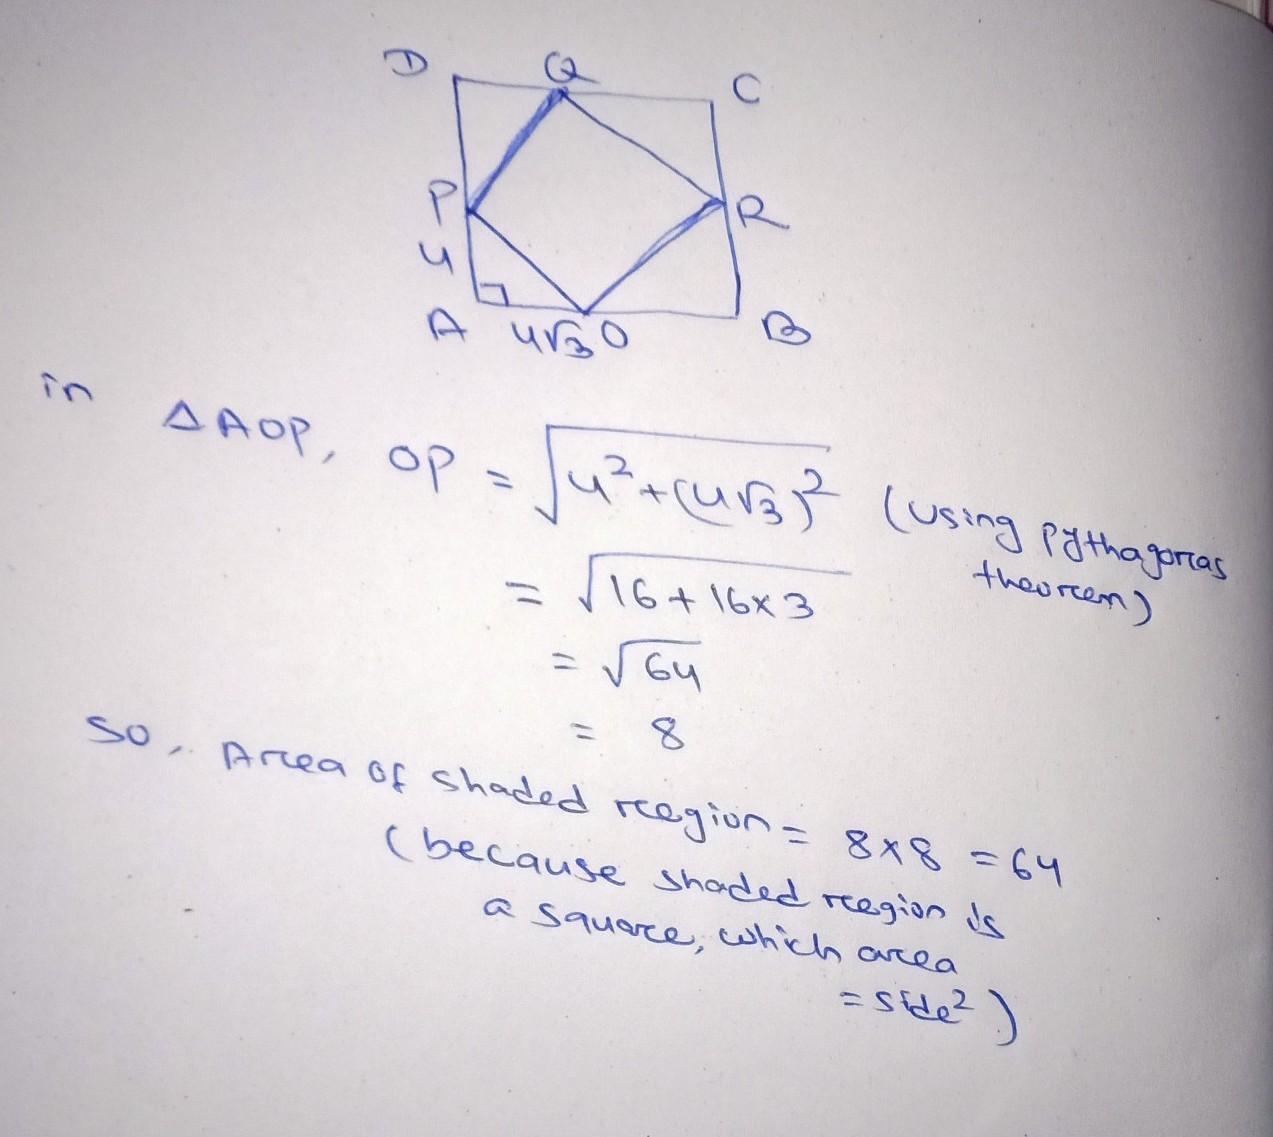 D Q C
P R
4
A 4√3 O B
in ΔAOP, OP = √4²+(4√3)² (using pythagoras
theorem)
= √16+16×3
= √64
= 8
So, Area of shaded region = 8×8 = 64
(because shaded region is
a square, which area
= side²)